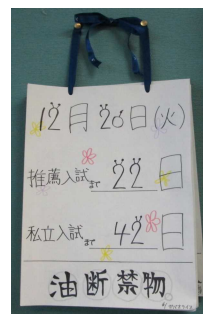 12月20日(火)
推薦入試まで 22日
私立入試まで 42日
油断禁物